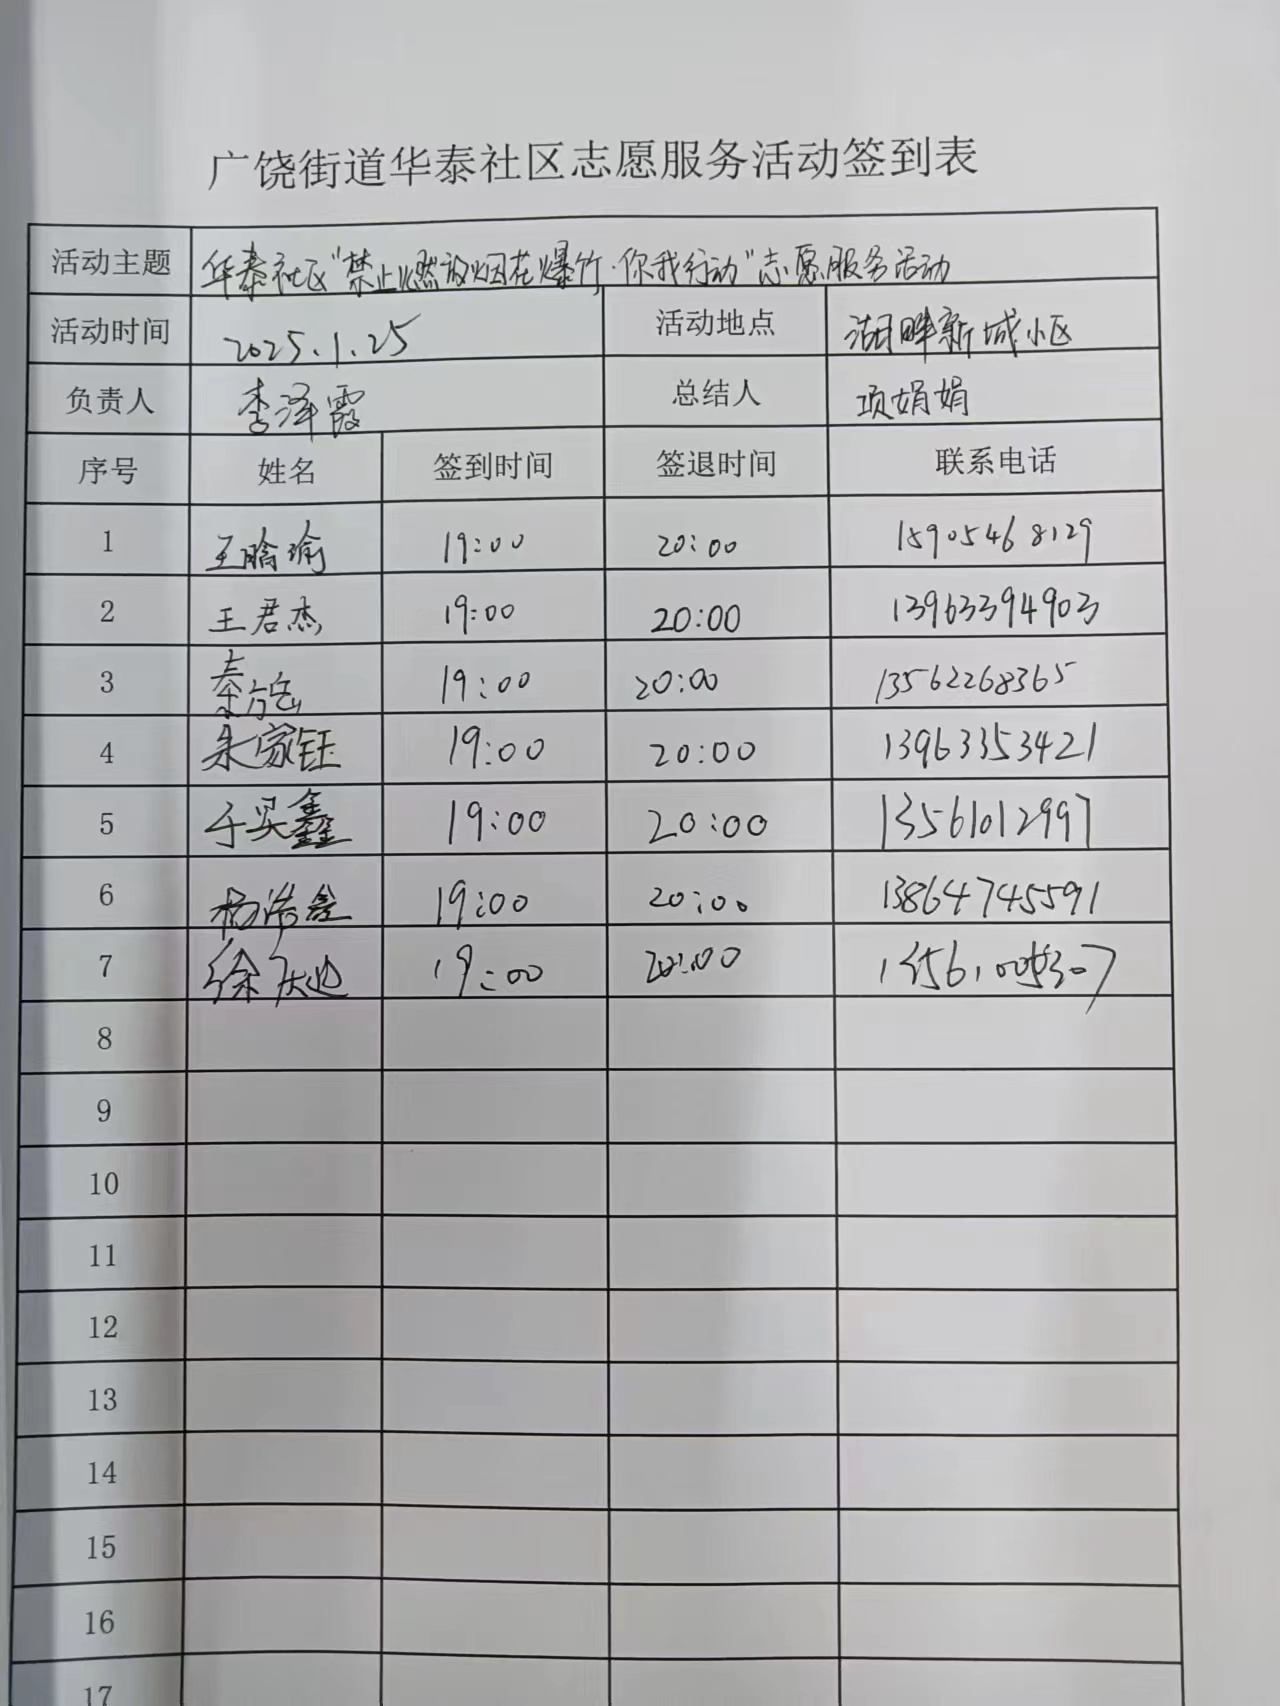 广饶街道华泰社区志愿服务活动签到表
活动主题 华泰社区"禁止燃放烟花爆竹·你我行动"志愿服务活动
活动时间 2025.1.25 活动地点 湖畔新城小区
负责人 李泽霞 总结人 项娟娟
序号 姓名 签到时间 签退时间 联系电话
1 王晗瑜 19:00 20:00 15905468129
2 王君杰 19:00 20:00 13963394903
3 秦 19:00 20:00 13562268365
4 朱家钰 19:00 20:00 13963353421
5 于昊鑫 19:00 20:00 13561012997
6 杨浩鑫 19:00 20:00 13864745591
7 徐 19:00 20:00
8
9
10
11
12
13
14
15
16
17